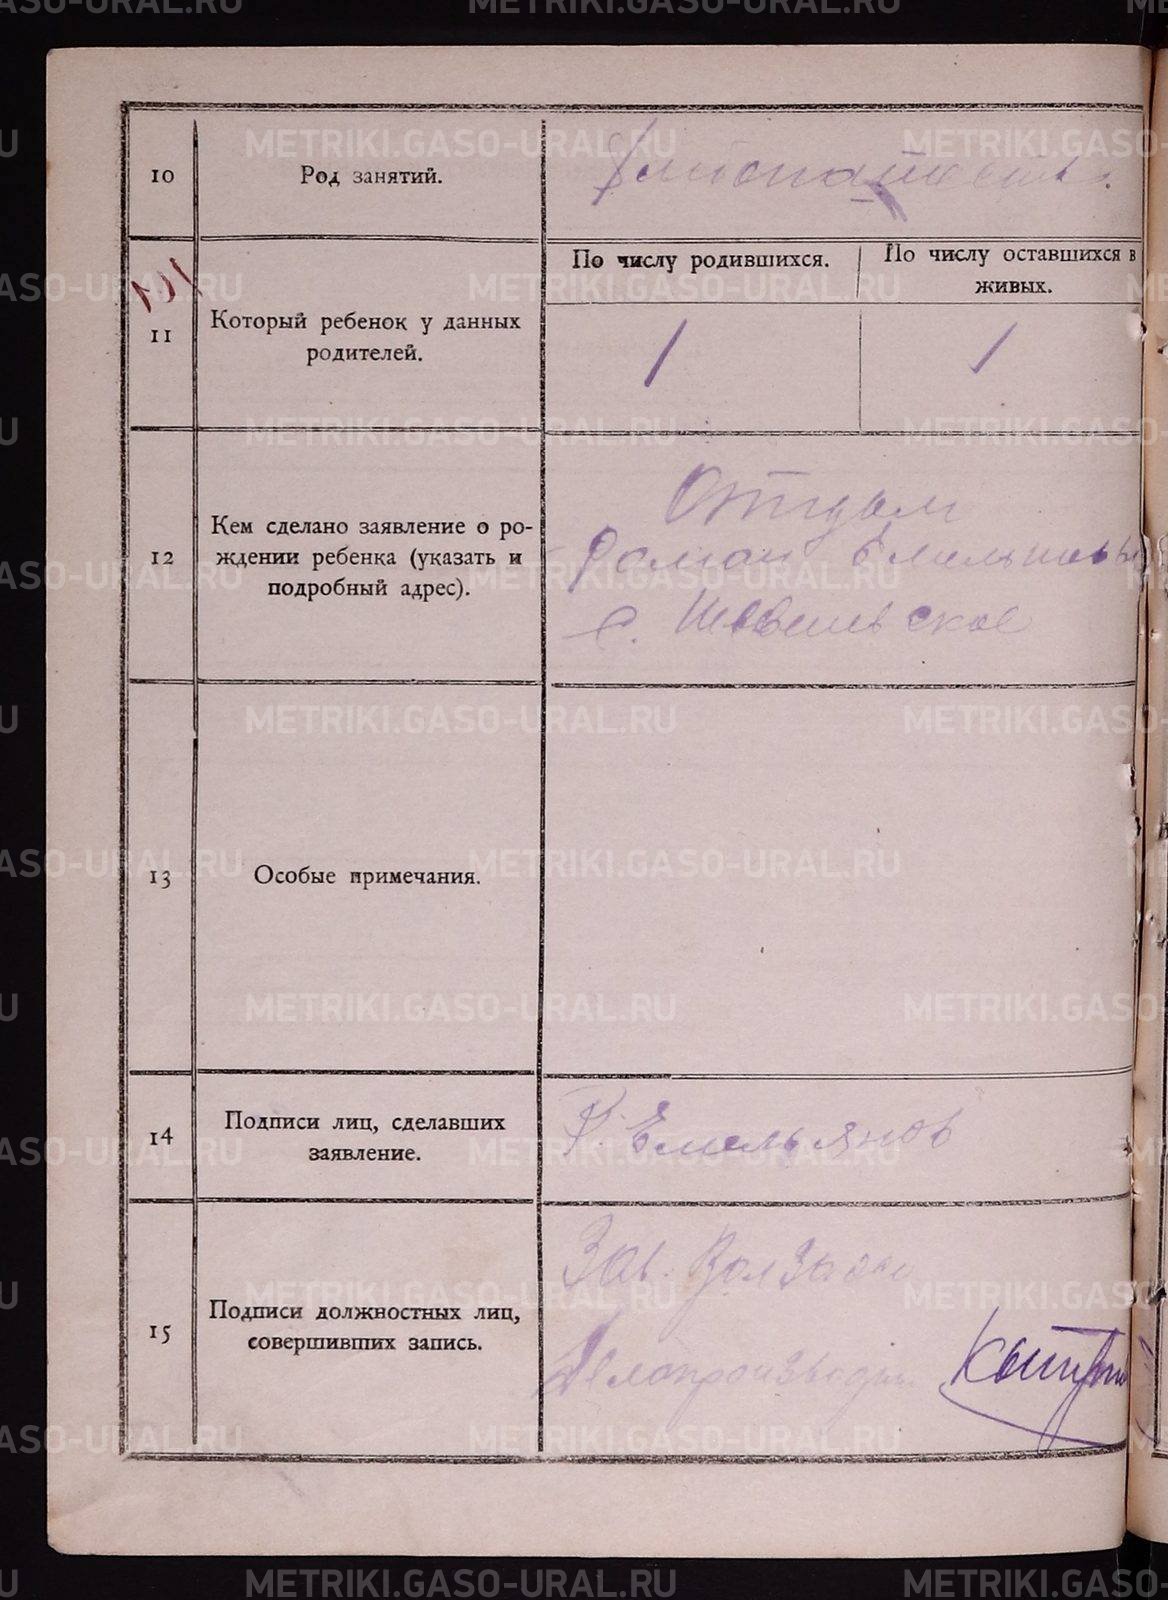 10
Род занятий.
11
Который ребенок у данных
родителей.
По числу родившихся.
По числу оставшихся в
живых.
1
1
12
Кем сделано заявление о ро-
ждении ребенка (указать и
подробный адрес).
Отцом
Роман Емельянов
с.
13
Особые примечания.
14
Подписи лиц, сделавших
заявление.
Р. Емельянов
15
Подписи должностных лиц,
совершивших запись.
Зав.
Делопроизводит
METRIKI.GASO-URAL.RU